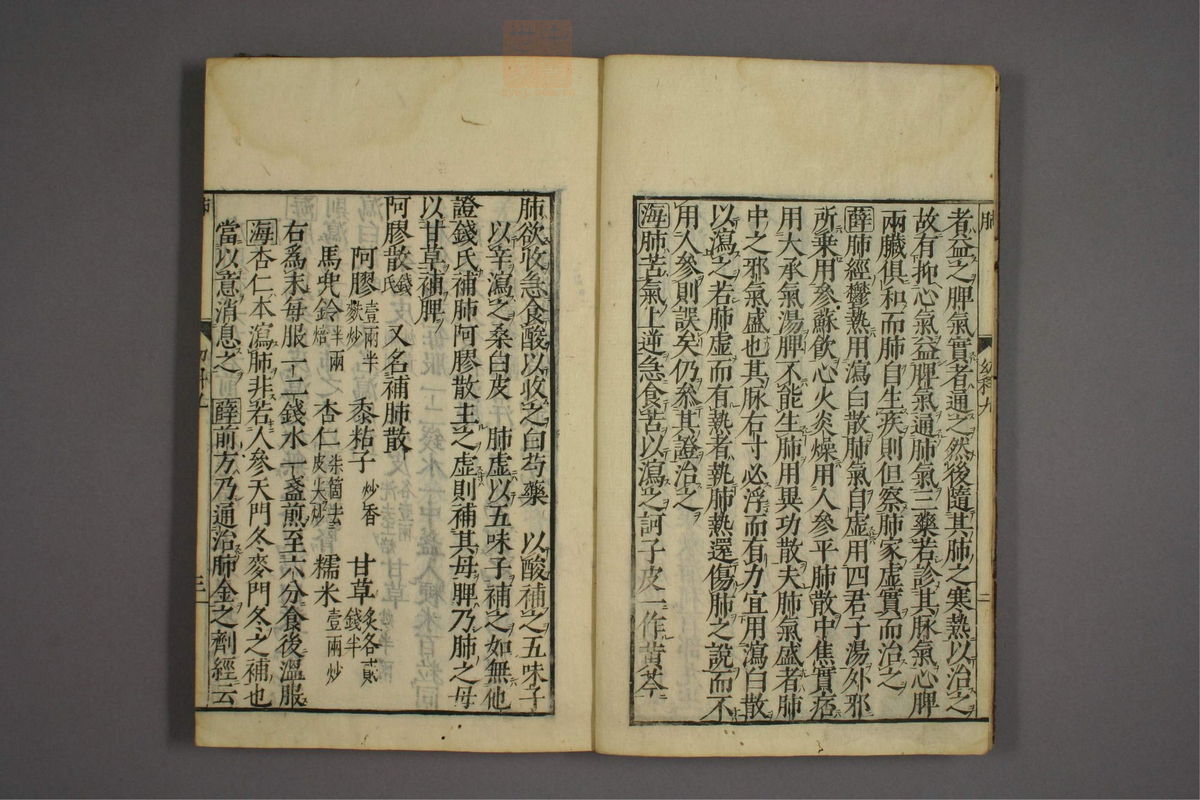 者益之脾氣實者通之然後隨其肺之寒熱以治之
故有抑心氣益脾氣通肺氣三藥若診其脉氣心脾
兩臟俱和而肺自生疾則但察肺家虛實而治之
薛肺經欝熱用瀉白散肺氣自虛用四君子湯外邪
所乗用參蘇飲心火炎爍用人參平肺散中焦實痞
用大承氣湯脾不能生肺用異功散夫肺氣盛者肺
中之邪氣盛也其脉右寸必浮而有力宜用瀉白散
以瀉之若肺虛而有熱者執肺熱還傷肺之說而不
用人參則誤矣仍叅其證治之
海肺苦氣上逆急食苦以瀉之訶子皮一作黃芩
肺
幼科九
二
肺欲收急食酸以收之白芍藥　以酸補之五味子
以辛瀉之桑白皮　肺虛以五味子補之如無他
證錢氏補肺阿膠散主之虛則補其母脾乃肺之母
以甘草補脾
阿膠散錢氏　又名補肺散
阿膠壹兩半麩炒　黍粘子炒香　甘草炙各貳錢半
馬兜鈴半兩焙　杏仁柒箇去皮尖炒　糯米壹兩炒
右爲末每服一二錢水一盞煎至六分食後溫服
海杏仁本瀉肺非若人參天門冬麥門冬之補也
當以意消息之　薛前方乃通治肺金之劑經云
三